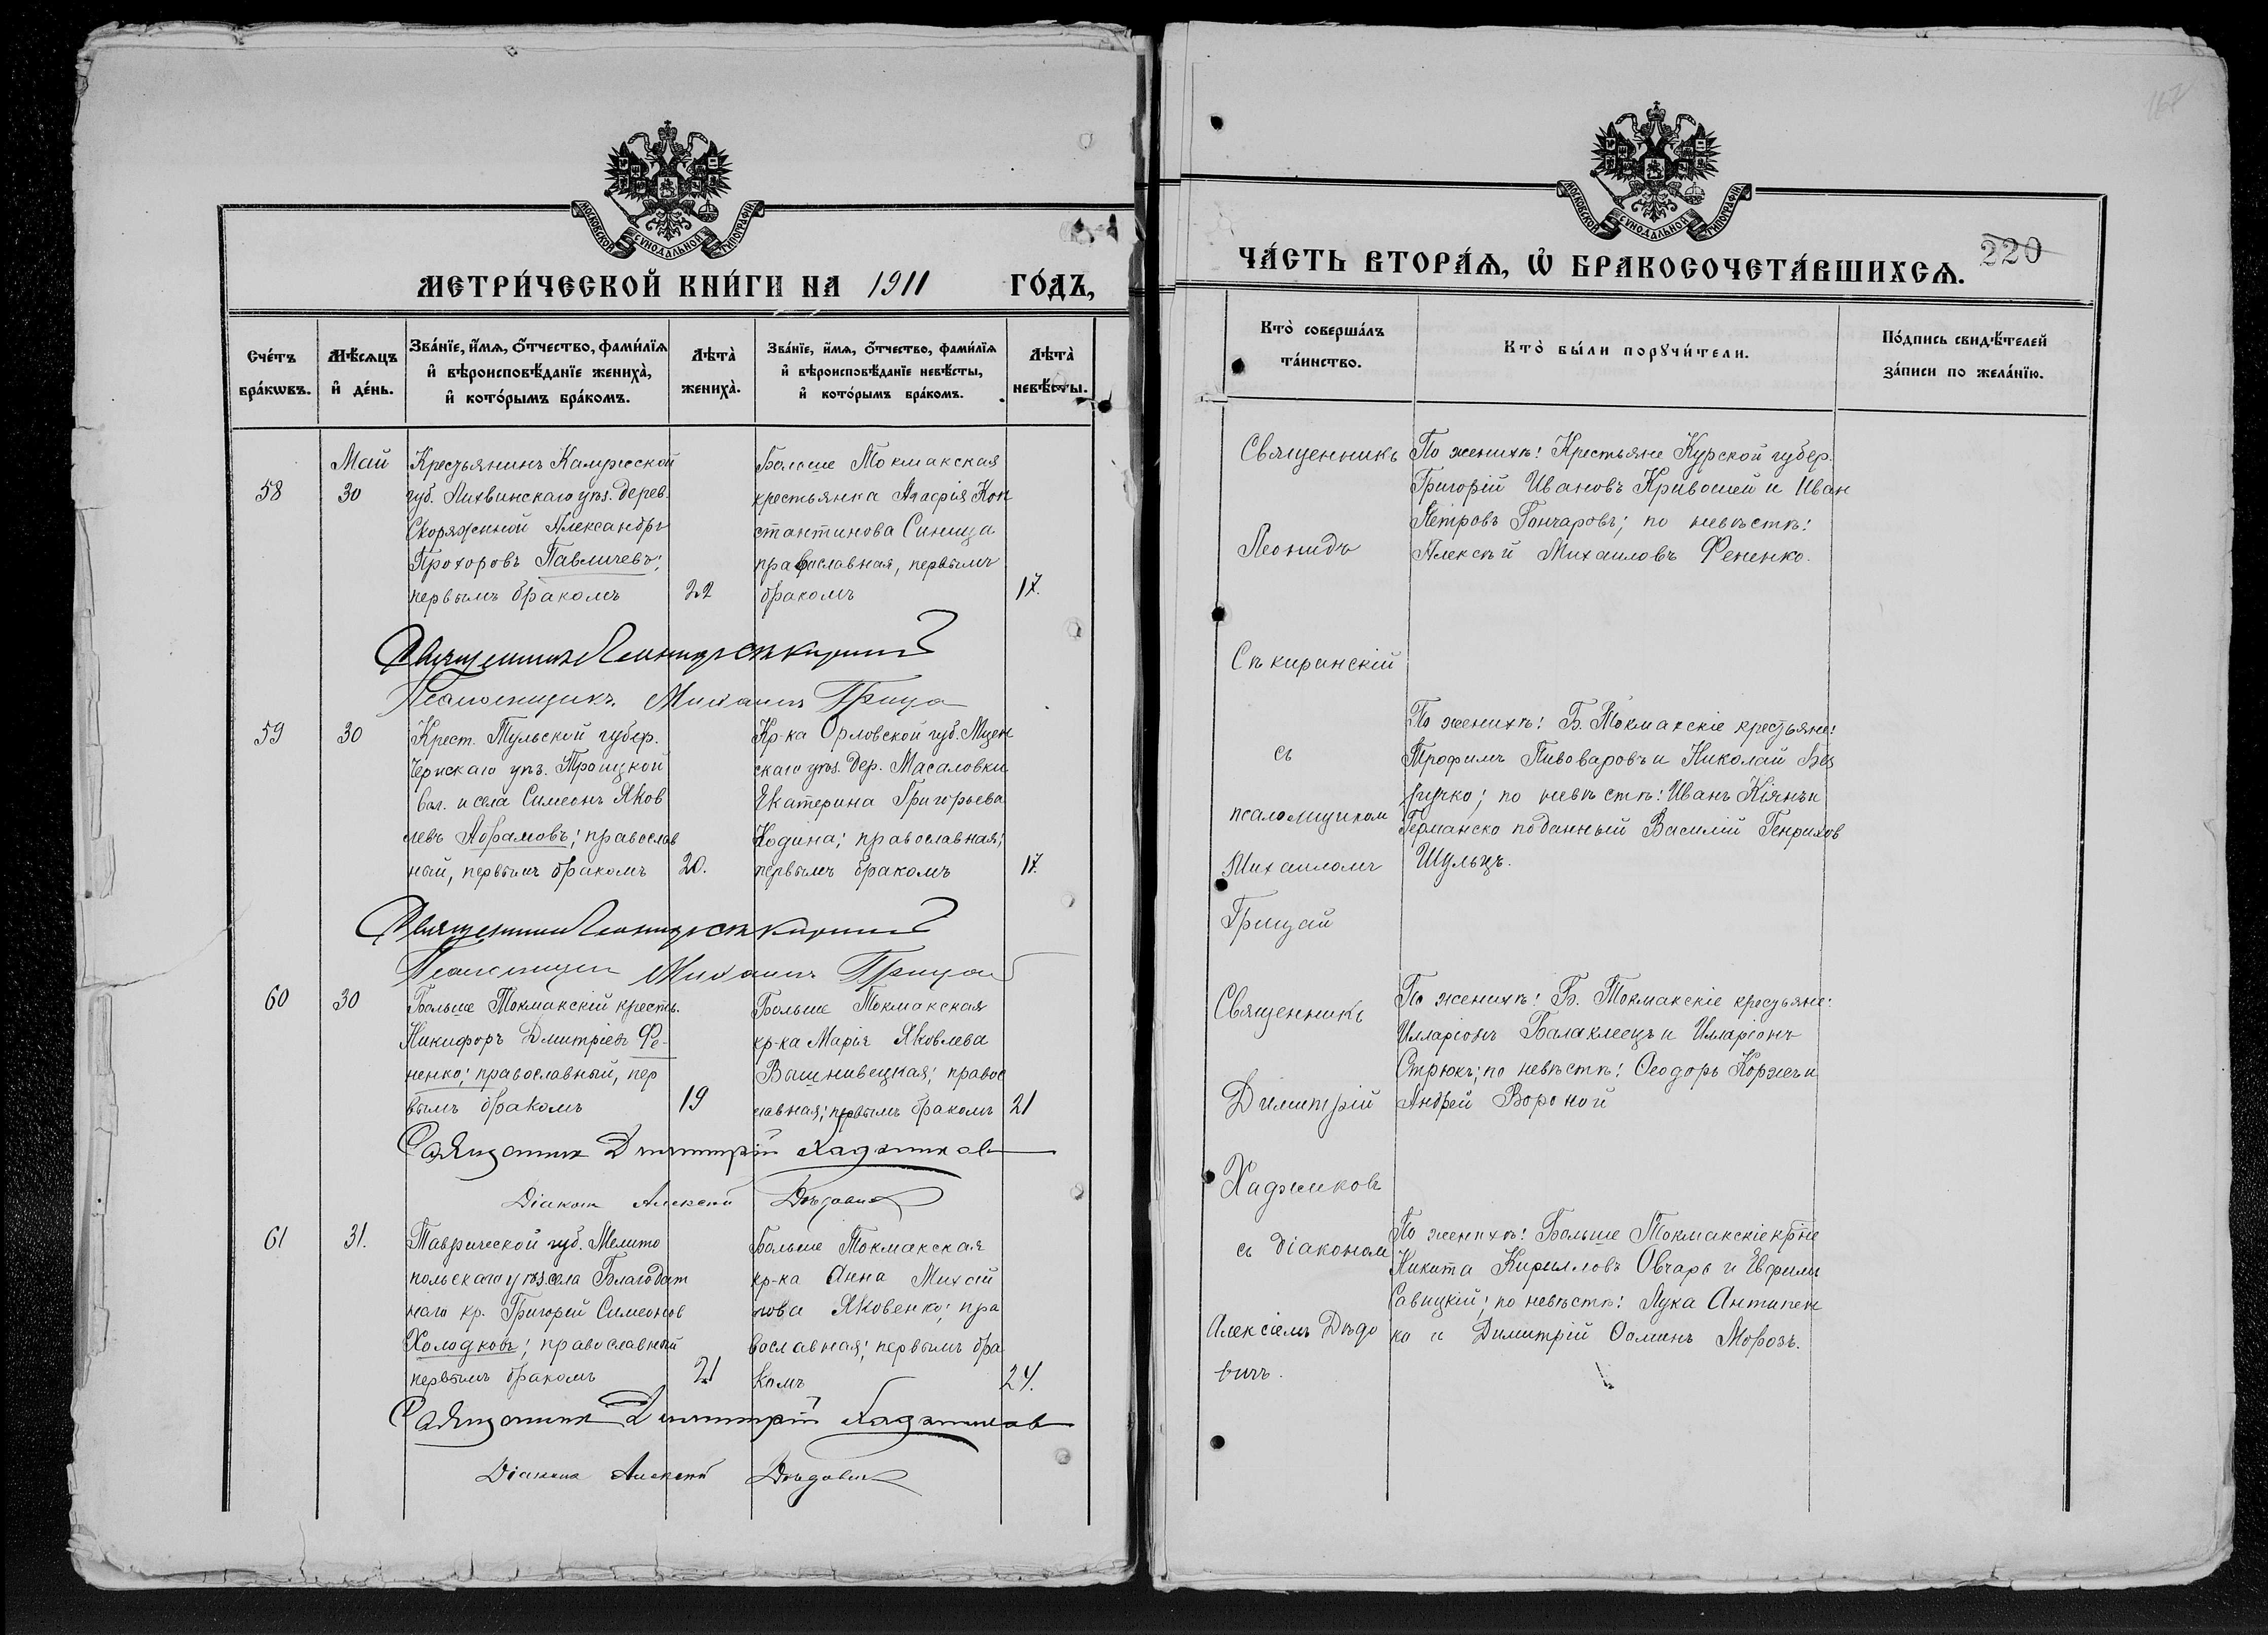 МОСКОВСКОЙ СѴНОДАЛЬНОЙ ТИПОГРАФІИ
МЕТРИ́ЧЕСКОЙ КНИ́ГИ НА 1911 ГО́ДЪ,
Сче́тъ бра́кѡвъ.
Мѣ́сяцъ и҆ де́нь.
Зва́нїе, и҆́мя, ѻ҆́тчество, фами́лїя и҆ вѣроисповѣ́данїе жениха̀, и҆ кото́рымъ бра́комъ.
Лѣта̀ жениха̀.
Зва́нїе, и҆́мя, ѻ҆́тчество, фами́лїя и҆ вѣроисповѣ́данїе невѣ́сты, и҆ кото́рымъ бра́комъ.
Лѣта̀ невѣ́сты.
58
Май
30
Крестьянинъ Калужской
губ. Лихвинскаго уѣз. дерев.
Александръ
Прохоровъ Павличевъ;
первымъ бракомъ
22
Больше Токмакская
крестьянка Агафія Кон
стантинова Синица
православная, первымъ
бракомъ
17.
Священникъ Леонидъ Сѣкиринскій
Псаломщикъ Михаилъ Грицай
59
30
Крест. Тульской губер.
Чернскаго уѣз. Троицкой
вол. и села Симеонъ Яков
левъ Абрамовъ; православ
ный, первымъ бракомъ
20.
Кр-ка Орловской губ. Мцен
скаго уѣз. дер. Масаловки
Екатерина Григорьева
Кодина; православная;
первымъ бракомъ
17.
Священникъ Леонидъ Сѣкиринскій
Псаломщикъ Михаилъ Грицай
60
30
Больше Токмакскій кресть.
Никифоръ Дмитріевъ Фе-
ненко; православный, пер
вымъ бракомъ
19
Больше Токмакская
кр-ка Марія Яковлева
Вышнивецкая; правос
лавная; первымъ бракомъ
21
Священникъ Димитрій Хаджиновъ
Діаконъ Алексѣй Дѣдовичъ
61
31.
Таврической губ. Мелито
польскаго уѣз. села Благодат
наго кр. Григорій Симеонов
Холодковъ; православный
первымъ бракомъ
21
Больше Токмакская
кр-ка Анна Михай
лова Яковенко; пра
вославная; первымъ бра
комъ
24.
Священникъ Димитрій Хаджиновъ
Діаконъ Алексѣй Дѣдовичъ
МОСКОВСКОЙ СѴНОДАЛЬНОЙ ТИПОГРАФІИ
ЧА́СТЬ ВТОРА́Я, Ѡ҆ БРАКОСОЧЕТА́ВШИХСЯ.
220
167
Кто̀ соверша́лъ та́инство.
Кто̀ бы́ли порꙋчи́тели.
По́дпись свидѣ́телей за́писи по жела́нїю.
Священникъ
Леонидъ
Сѣкиринскій
съ
псаломщикомъ
Михаиломъ
Грицай
По женихѣ: Крестьяне Курской губер.
Григорій Ивановъ Кривошей и Иван
Петровъ Гончаровъ; по невѣстѣ:
Алексѣй Михаиловъ Фененко.
По женихѣ: Б. Токмакскіе крестьяне:
Трофимъ Пивоваровъ и Николай Без
ручко; по невѣстѣ: Иванъ Кіянъ и
Германско поданный Василій Генрихов
Шульцъ.
Священникъ
Димитрій
Хаджиновъ
съ діакономъ
Алексіемъ Дѣдо
вичъ.
По женихѣ: Б. Токмакскіе крестьяне:
Илларіонъ Балаклеецъ и Илларіонъ
Стрюкъ; по невѣстѣ: Ѳеодоръ Коржъ и
Андрей Вороной
По женихѣ: Больше Токмакскіе кр-не
Никита Кирилловъ Овчаръ и Евфимъ
Савицкій; по невѣстѣ: Лука Антипен
ко и Димитрій Ѳоминъ Морозъ.